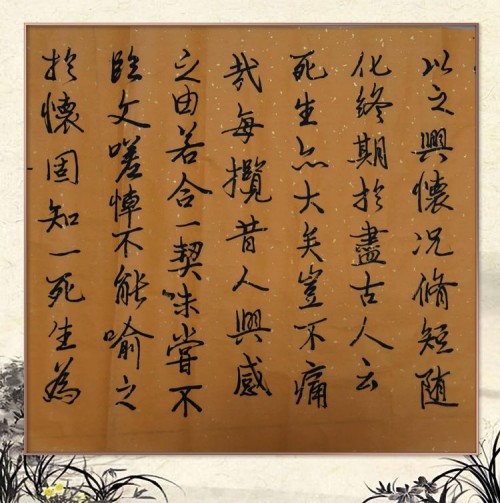 以之興懷况脩短随
化終期於盡古人云
死生亦大矣豈不痛
哉每攬昔人興感
之由若合一契未嘗不
臨文嗟悼不能喻之
於懷固知一死生為